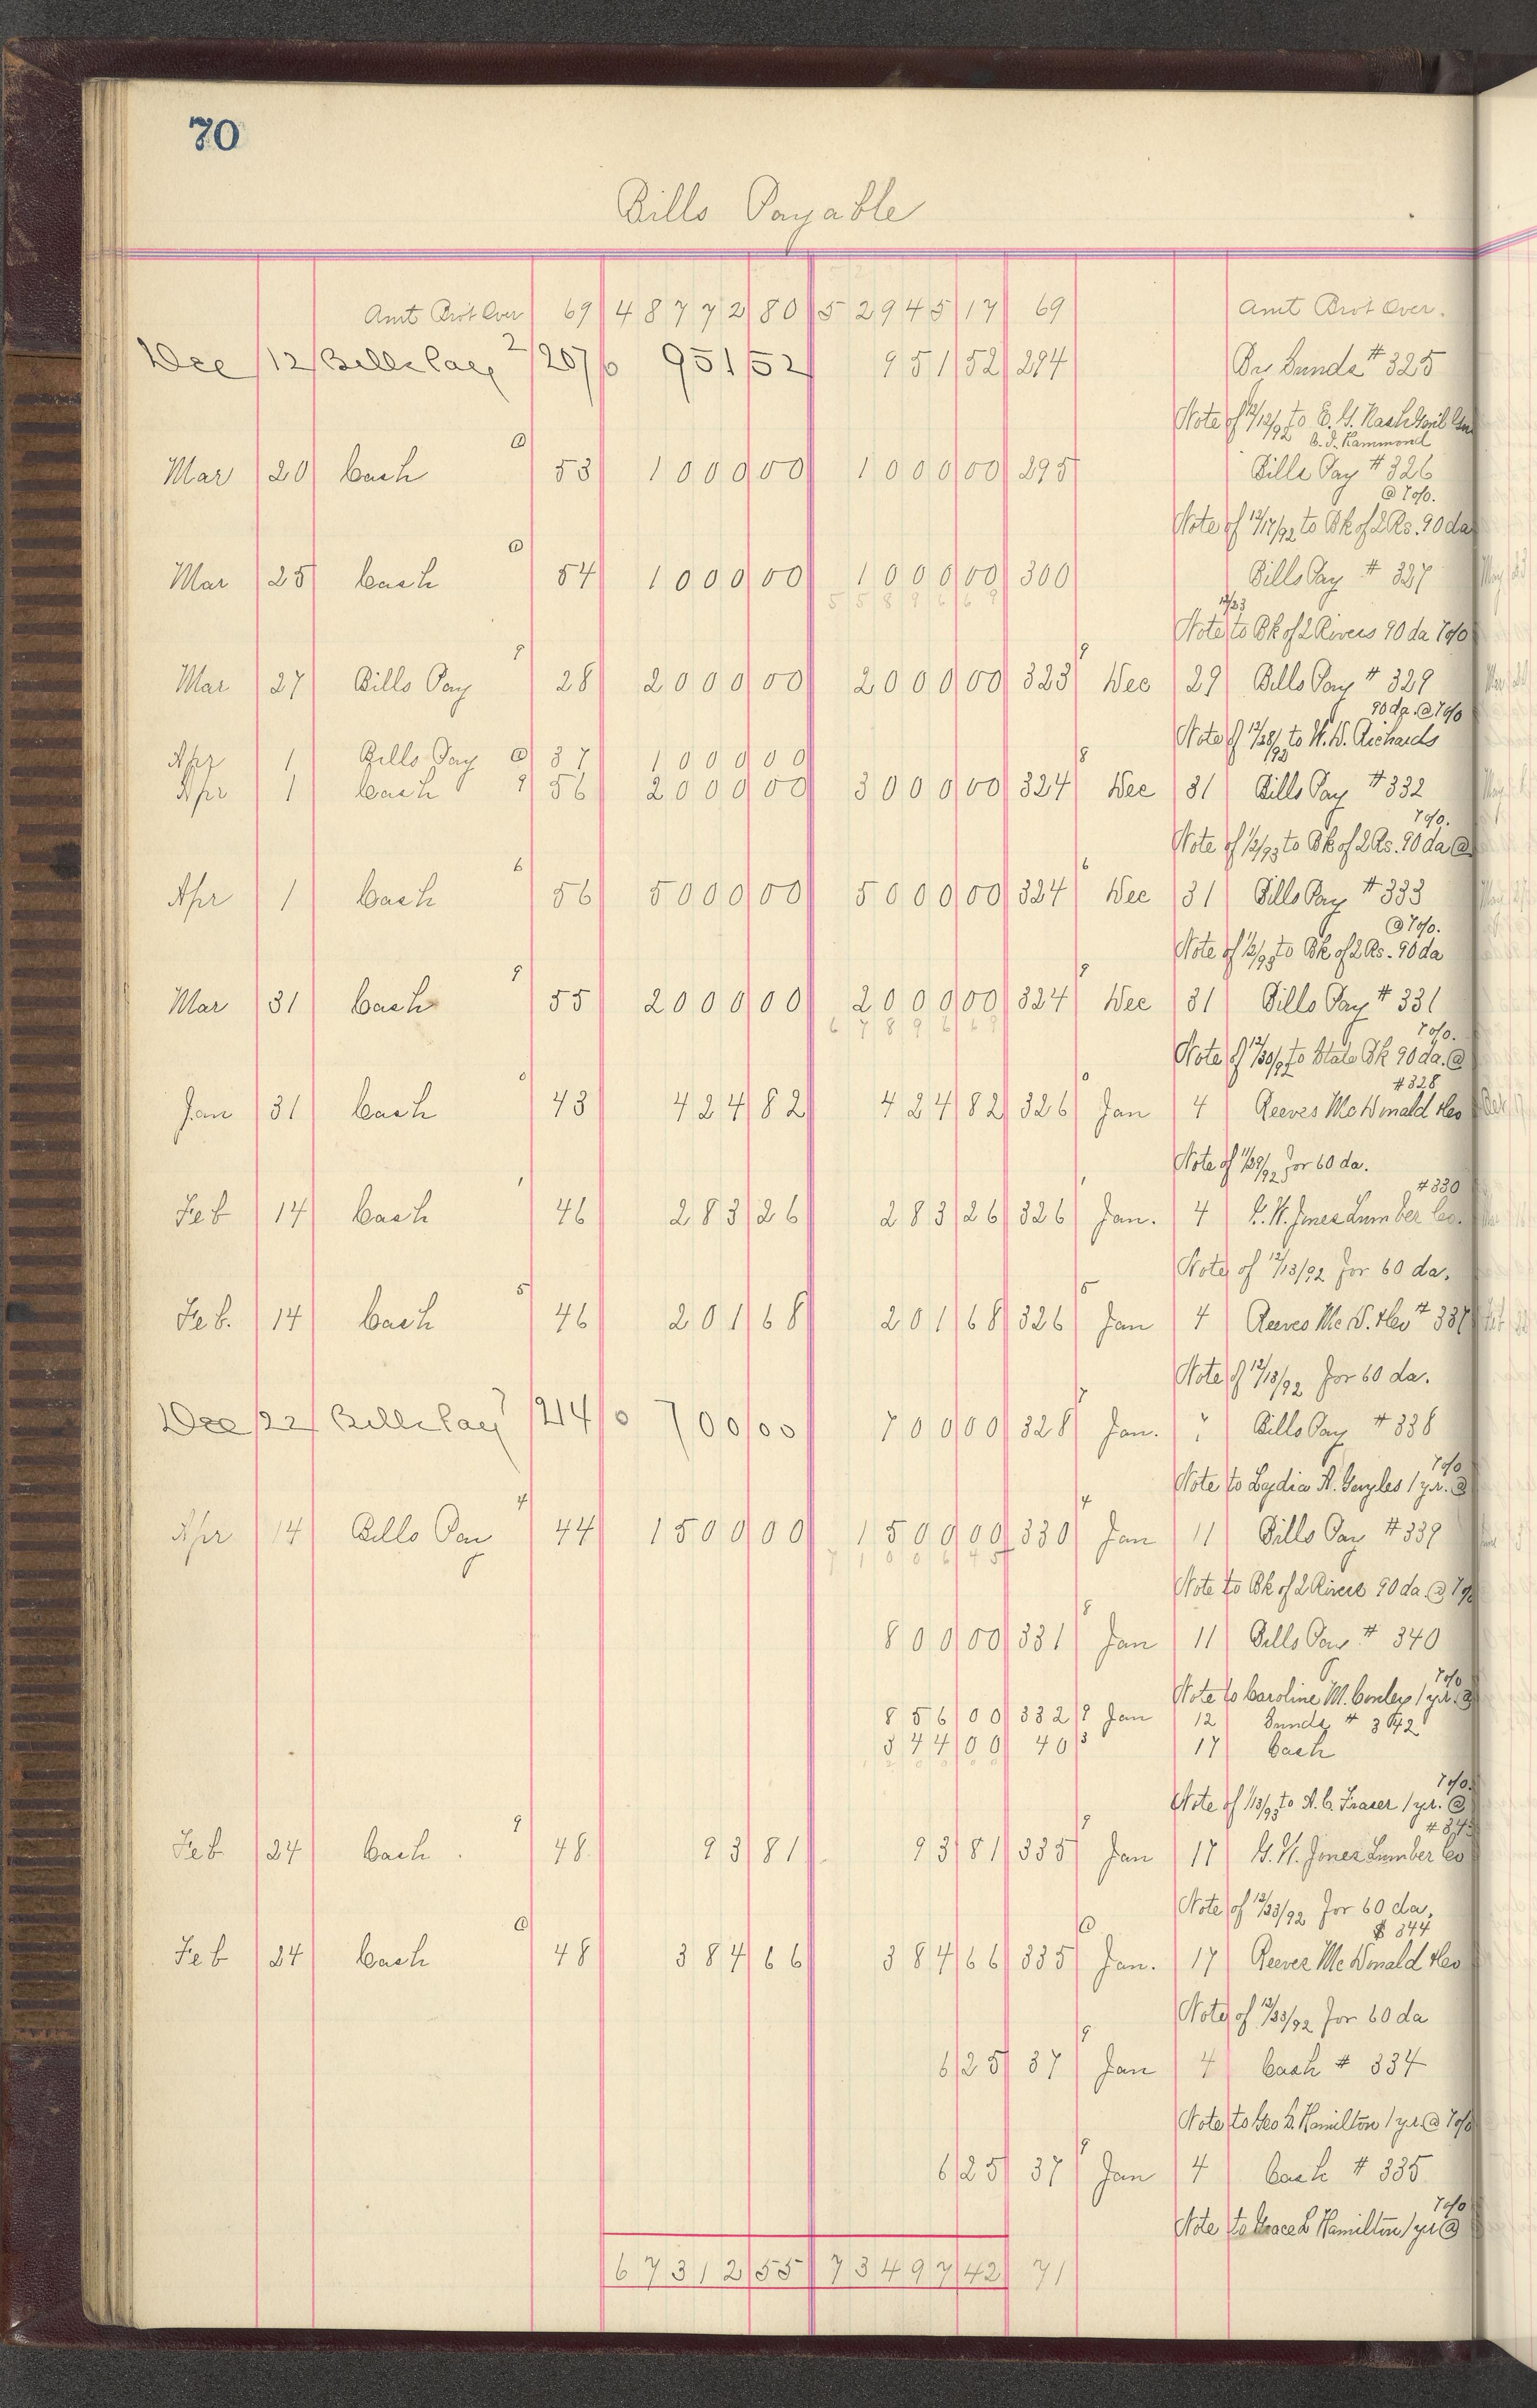 70
Bills Payable
Amt Brot Over 69 48772 80 52945 17 69 Amt Brot Over.
Dec 12 Bills Pay 2 207 951 52 951 52 294 By Sunds # 325
Note of 12/12/92 to E. G. Nash
C. F. Hammond
Mar 20 Cash @ 53 1000 00 1000 00 295 Bills Pay # 326
@ 7%.
Note of 12/17/92 to Bk of 2 Rs. 90 da
Mar 25 Cash @ 54 1000 00 1000 00 300 Bills Pay # 327
55896 69
12/23
Note to Bk of 2 Rivers 90 da 7%
Mar 27 Bills Pay 9 28 2000 00 2000 00 323 9 Dec 29 Bills Pay # 329
90 da. @ 7%
Note of 12/28/92 to W. D. Richards
Apr 1 Bills Pay @ 37 1000 00
Apr 1 Cash 9 56 2000 00 3000 00 324 8 Dec 31 Bills Pay # 332
7%.
Note of 1/2/93 to Bk of 2 Rs. 90 da @
Apr 1 Cash 6 56 5000 00 5000 00 324 6 Dec 31 Bills Pay # 333
@ 7%.
Note of 1/2/93 to Bk of 2 Rs. 90 da
Mar 31 Cash 9 55 2000 00 2000 00 324 9 Dec 31 Bills Pay # 331
67896 69
7%.
Note of 12/30/92 to State Bk 90 da. @
# 328
Jan 31 Cash 0 43 424 82 424 82 326 0 Jan 4 Reeves McDonald & Co
Note of 11/29/92 for 60 da.
# 330
Feb 14 Cash 1 46 283 26 283 26 326 1 Jan. 4 G. W. Jones Lumber Co.
Note of 12/13/92 for 60 da.
Feb. 14 Cash 5 46 201 68 201 68 326 5 Jan 4 Reeves Mc D. & Co # 337
Note of 12/13/92 for 60 da.
Dec 22 Bills Pay 7 214 700 00 700 00 328 7 Jan. 7 Bills Pay # 338
7%
Note to Lydia A. 1 yr. @
Apr 14 Bills Pay 4 44 1500 00 1500 00 330 4 Jan 11 Bills Pay # 339
71006 45
Note to Bk of 2 Rivers 90 da @ 7%
800 00 331 8 Jan 11 Bills Pay # 340
7%
Note to Caroline M. Conley 1 yr. @
856 00 332 9 Jan 12 Sunds # 342
344 00 40 3 17 Cash
7%.
Note of 1/13/93 to A. C. Fraser 1 yr. @
# 343
Feb 24 Cash 9 48 93 81 93 81 335 9 Jan 17 G. W. Jones Lumber Co
Note of 12/23/92 for 60 da.
# 344
Feb 24 Cash @ 48 384 66 384 66 335 @ Jan. 17 Reeves McDonald & Co
Note of 12/23/92 for 60 da
6 25 37 9 Jan 4 Cash # 334
Note to Geo L. Hamilton 1 yr. @ 7%
6 25 37 9 Jan 4 Cash # 335
7%
Note to Grace L Hamilton 1 yr @
67312 55 73497 42 71